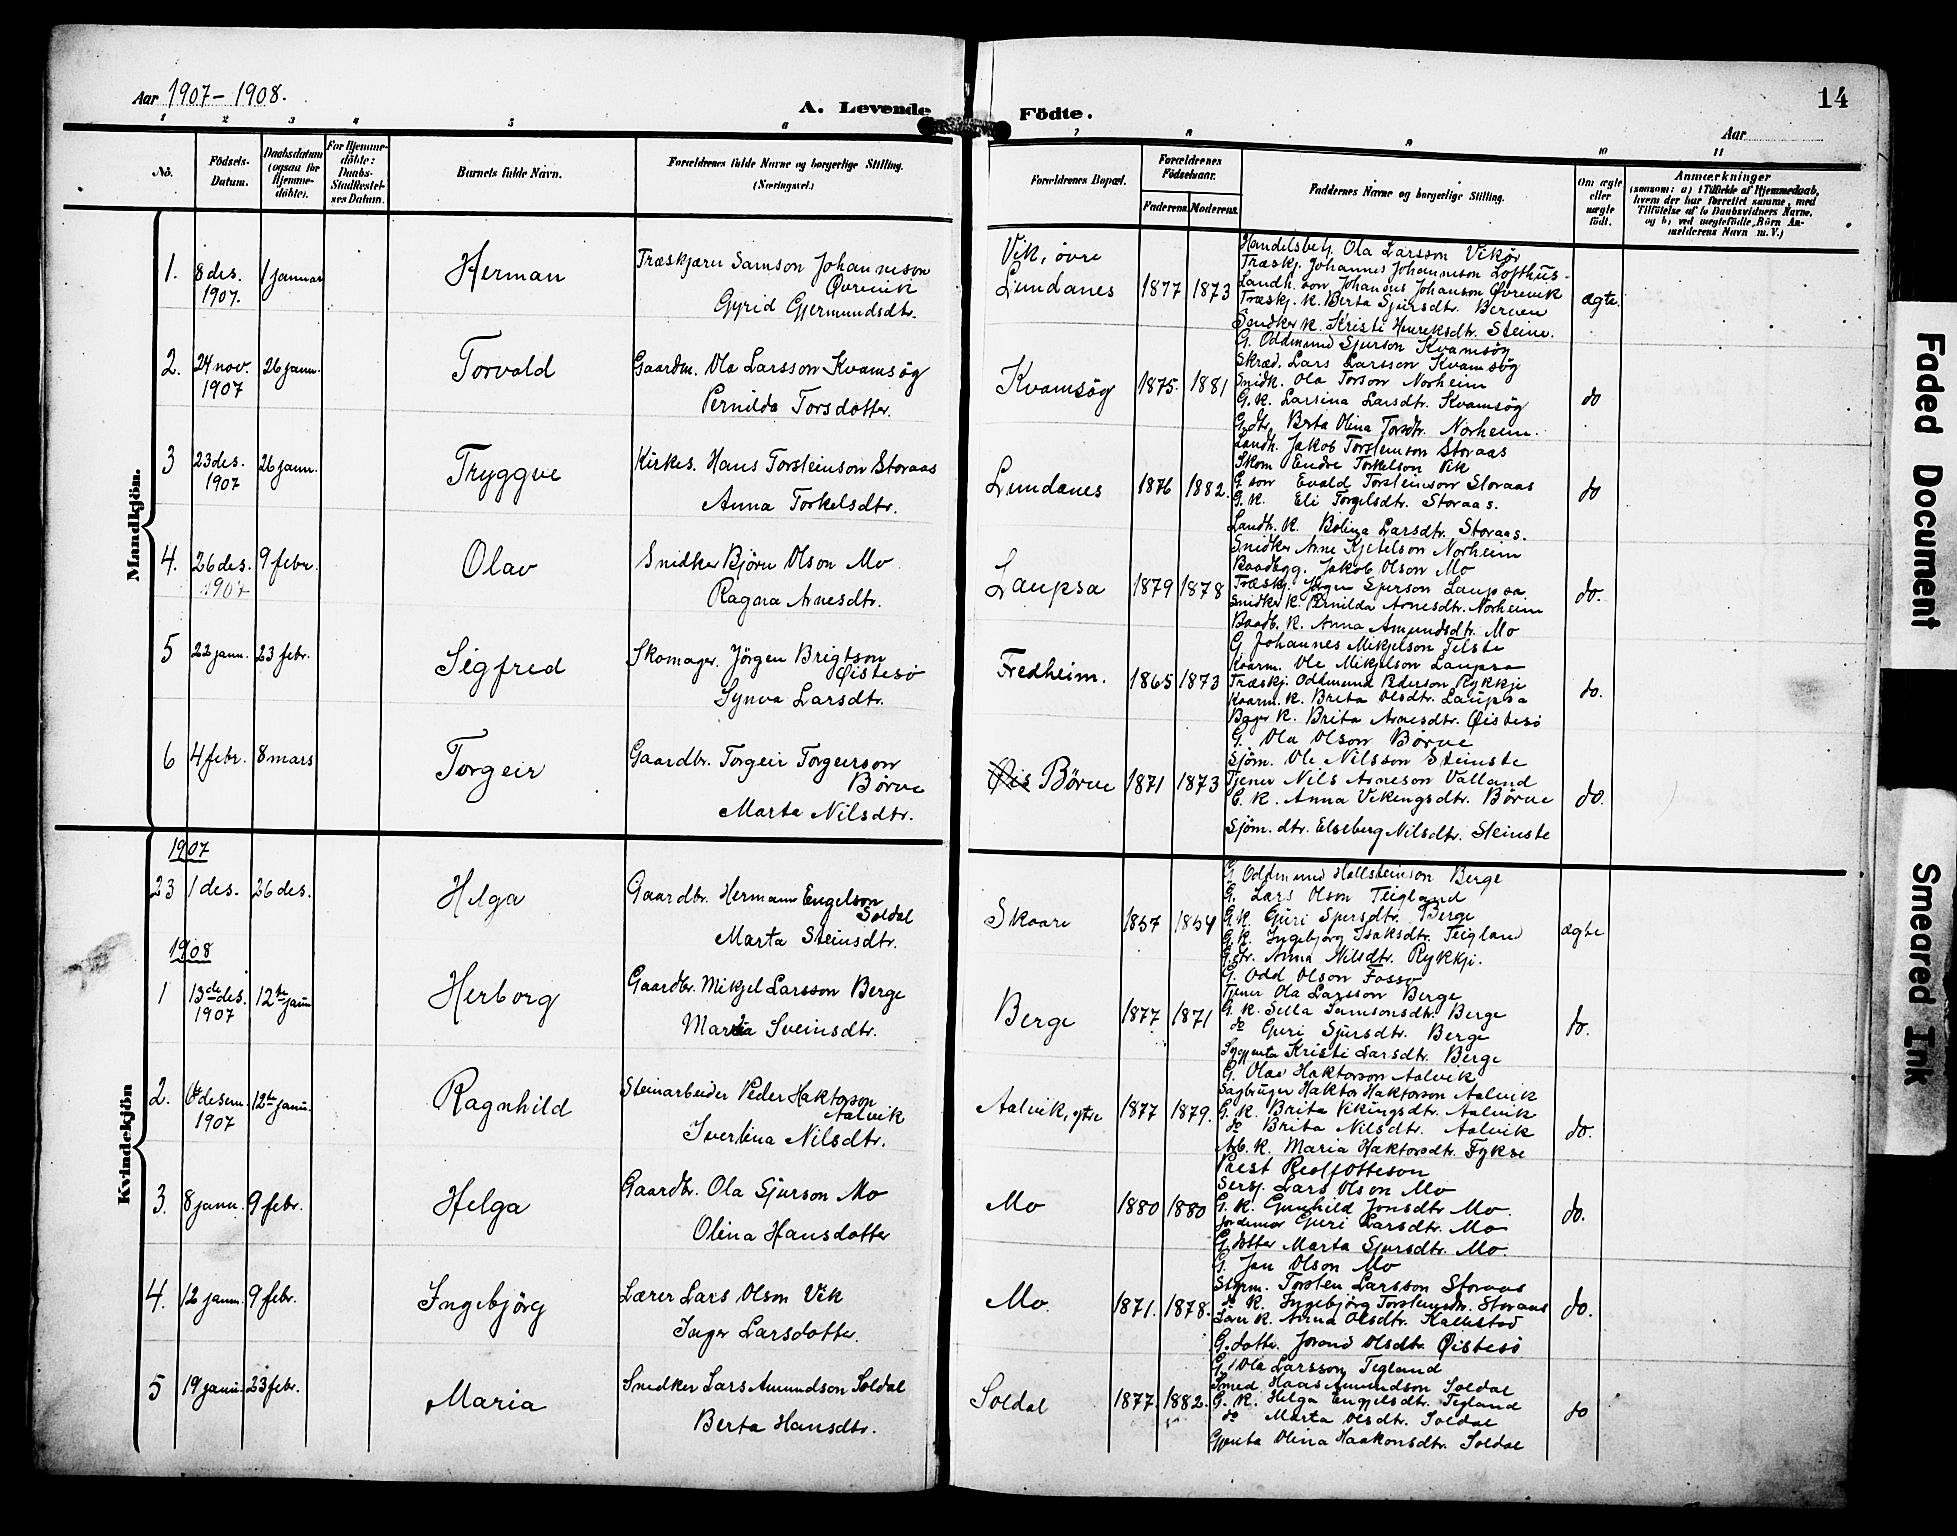 Aar 1907-1908.
A. Levende
Födte.
14
Aar
1 2 3 4 5 6 7 8 9 10 11
No.
Födsels-Datum.
Daabsdatum (ogsaa for Hjemmedöbte).
For Hjemmedöbte: Daabs-Stadfæstelses Datum.
Barnets fulde Navn.
Forældrenes fulde Navne og borgerlige Stilling. (Næringsvei.)
Forældrenes Bopæl.
Forældrenes Födselsaar.
Faderens. Moderens.
Faddernes Navne og borgerlige Stilling.
Om ægte eller uægte födt.
Anmærkninger
(saasom: a) i Tilfælde af Hjemmedaab,
hvem der har forrettet samme, med
Tilföielse af to Daabsvidners Navne,
og b) ved uægtefödte Börn An-
melderens Navn m. V.)
Mandkjön.
1. 8 des. 1907. 1 januar
Herman
Træskjærer Samson Johanneson Øvrevik
Gyrid Gjermundsdtr.
Vik, övre
Lundanes 1877 1873
Handelsbet. Ola Larsson Vikör
Træskj. Johannes Johanneson Lofthus
Landh. son Johannes Johanson Øvrevik
Træskj. k. Berta Sjursdtr. Berven
Snedker k. Kristi Henreksdtr. Steine.
ægte.
2. 24 nov. 1907 26 jann.
Torvald
Gaardm. Ola Larsson Kvamsög
Pernilda Torsdotter.
Kvamsög 1875. 1881
G. Oddmund Sjurson Kvamsög
Skræd. Lars Larsson Kvamsög
Snidk. Ola Torson Norheim
G. k. Larsina Larsdtr. Kvamsög
G. dtr. Berta Olina Torsdtr. Norheim.
do
3 23 des. 1907 26 jann.
Tryggve
Kirkes. Hans Torsteinson Storaas
Anna Torkelsdtr.
Lundanes 1876 1882.
Landh. Jakob Torsteinson Storaas
Skom Endre Torkelson Vik
G. son Evald Torsteinson Storaas
G. k. Eli Torgilsdtr. Storaas.
Landh. k. Bolina Larsdtr. Storaas.
do
4. 26 des. 1907 9 febr.
Olav
Snidker Björn Olson Mo
Ragna Arnesdtr.
Laupsa 1879 1878
Snidker Arne Kjetelson Norheim
Baadbygg. Jakob Olson Mo
Træskj. Jörgen Sjurson Laupsa
Snidker k. Pernilda Arnesdtr. Norheim
Baadb. k. Anna Amundsdtr. Mo
do.
5 22 jann. 23 febr.
Sigfred
Skomager. Jörgen Brigtson Øistesö
Synva Larsdtr.
Fredheim. 1865 1873
G Johannes Mikjelson Tilste
Kvarm. Ole Mikjelson Laupsa
Træskj. Oddmund Pederson Rykkje
Kvarm. k. Brita Olsdtr. Laupsa
Bager k. Brita Arnesdtr. Øistesö
do.
6 4 febr. 8 mars
Torgeir
Gaardbr. Torgeir Torgeirson Börve
Marta Nilsdtr.
Øis Börve 1871 1873
G. Ola Olson Börve
Sjöm. Ole Nilsson Steinste
Tjener Nils Arneson Valland
G. k. Anna Vikingsdtr. Börve
Sjöm. dtr. Elseberg Nilsdtr. Steinste
do.
Kvindekjön
1907
23 1 des. 26 des.
Helga
Gaardbr. Hermann Engelson Soldal
Marta Steinsdtr.
Skaare 1857 1854
G. Oddmund Hallsteinson Berge
G. Lars Olson Teigland
G. k. Guri Sjursdtr. Berge
G. k. Ingebjörg Isaksdtr. Teigland
G. dtr. Anna Nilsdtr. Rykkje.
ægte
1908
1 13de des. 1907 12te jann
Herborg
Gaardbr. Mikjel Larsson Berge
Maria Sveinsdtr.
Berge 1877 1871
G. Odd Olson Fosse
Tjener Ola Larsson Berge
G. k. Sella Samsonsdtr. Berge
do Guri Sjursdtr. Berge
Kristi Larsdtr. Berge
do.
2. desem. 1907 12te jann.
Ragnhild
Steinarbeider Peder Haktorson Aalvik
Ivertina Nilsdtr.
Aalvik, ytre 1877 1879.
G. Olav Haktorson Aalvik
Sagbruger Haktor Haktorson Aalvik
G. k. Brita Vikingsdtr. Aalvik
do Brita Nilsdtr. Aalvik
Arb. k. Maria Haktorsdtr. Fykse
do.
3. 8 jann. 9 febr.
Helga
Gaardbr. Ola Sjurson Mo
Olina Hansdotter
Mo 1880 1880
Prest Reolf Otteson
Sersj. Lars Olson Mo
G. k. Gunhild Jonsdtr Mo.
Jordemor Guri Larsdtr. Mo
G. dotter Marta Sjursdtr. Mo.
do.
4. 12 jann. 9 febr.
Ingebjörg
Lærer Lars Olson Vik
Inger Larsdotter.
Mo. 1871. 1878.
G. Jon Olson Mo
Styrm. Torsten Larsson Storaas
do k. Ingebjörg Torsteinsdtr. Storaas
Lærer k. Anna Olsdtr. Kallestad
G. dotter. Jorand Olsdtr. Øistesö
do.
5 19 jann. 23 febr.
Maria
Snedker Lars Amundson Soldal
Berta Hansdtr.
Soldal 1877. 1882.
G. Ola Larsson Tegland
Smed Haas Amundson Soldal
G. k. Helga Engjelsdtr. Tegland
do Marta Olsdtr. Soldal
Gjenta Olina Haakonsdtr. Soldal
do
Faded Document
Smeared Ink